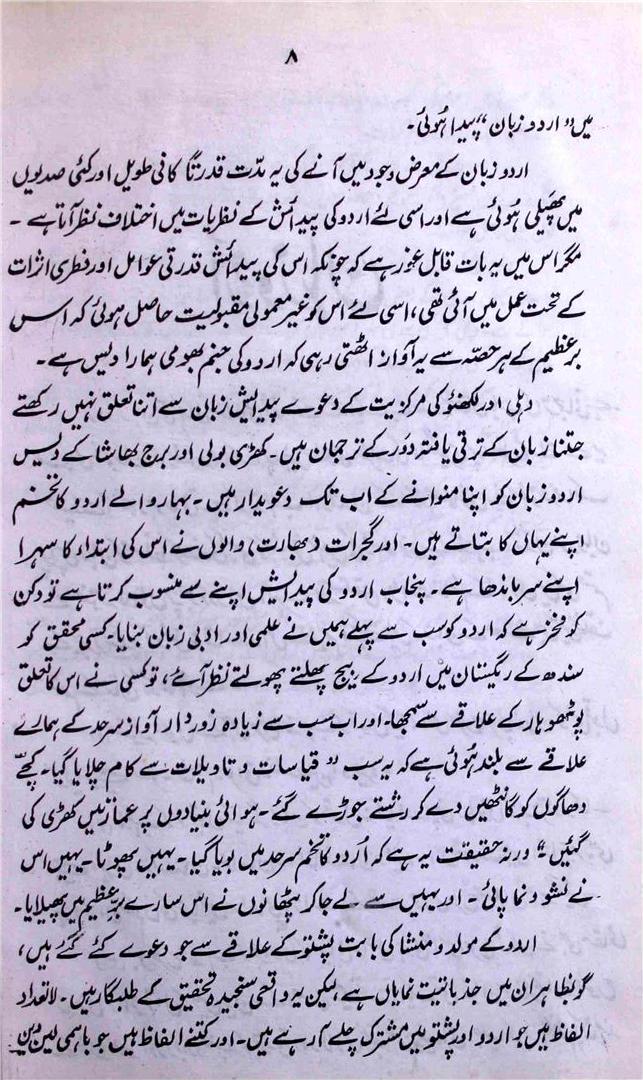 ۸
میں ”اردو زبان“ پیدا ہُوئی۔
اردو زبان کے معرض وجود میں آنے کی یہ مدّت قدرتاً کافی طویل اور کئی صدیوں
میں پھیلی ہُوئی ہے اور اسی لئے اردو کی پیدائش کے نظریات میں اختلاف نظر آتا ہے ۔
مگر اس میں یہ بات قابل غور ہے کہ چونکہ اس کی پیدائش قدرتی عوامل اور فطری اثرات
کے تحت عمل میں آئی تھی ، اسی لئے اس کو غیر معمولی مقبولیت حاصل ہوئی کہ اس
برعظیم کے ہر حصّہ سے یہ آواز اٹھتی رہی کہ اردو کی جنم بھومی ہمارا دیس ہے ۔
دہلی اور لکھنؤ کی مرکزیت کے دعوے پیدائش زبان سے اتنا تعلق نہیں رکھتے
جتنا زبان کے ترقی یافتہ دَور کے ترجمان ہیں ۔ کھڑی بولی اور برج بھاشا کے دیس
اردو زبان کو اپنا منوانے کے اب تک دعویدار ہیں ۔ بہار والے اردو کا تخم
اپنے یہاں کا بتاتے ہیں ۔ اور گجرات (بھارت) والوں نے اس کی ابتداء کا سہرا
اپنے سر باندھا ہے ۔ پنجاب اردو کی پیدائش اپنے سے منسوب کرتا ہے تو دکن
کو فخر ہے کہ اردو کو سب سے پہلے ہمیں نے علمی اور ادبی زبان بنایا ۔ کسی محقق کو
سندھ کے ریگستان میں اردو کے بیج پھلتے پھولتے نظر آئے ، تو کسی نے اس کا تعلق
پوٹھوہار کے علاقے سے سمجھا ۔ اور اب سب سے زیادہ زوردار آواز سرحد کے ہمارے
علاقے سے بلند ہُوئی ہے کہ یہ سب ” قیاسات و تاویلات سے کام چلایا گیا ۔ کچّے
دھاگوں کو گانٹھیں دے کر رشتے جوڑے گئے ۔ ہوائی بنیادوں پر عمارتیں کھڑی کی
گئیں “ ورنہ حقیقت یہ ہے کہ اُردو کا تخم سرحد میں بویا گیا ۔ یہیں پھوٹا ۔ یہیں اس
نے نشوونما پائی ۔ اور یہیں سے لے جا کر پٹھانوں نے اس سارے برِّعظیم میں پھیلایا ۔
اردو کے مولد و منشا کی بابت پشتو کے علاقے سے جو دعوے کئے گئے ہیں ،
گو بظاہر ان میں جذباتیت نمایاں ہے ، لیکن یہ واقعی سنجیدہ تحقیق کے طلبگار ہیں ۔ لاتعداد
الفاظ ہیں جو اردو اور پشتو میں مشترک چلے آ رہے ہیں ۔ اور کتنے الفاظ ہیں جو باہمی لین دین